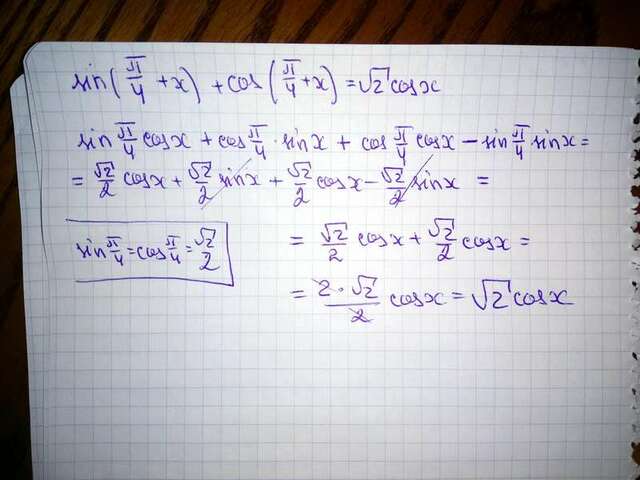 sin(π/4 + x) + cos(π/4 + x) = √2 cosx
sin π/4 cosx + cos π/4 · sinx + cos π/4 cosx - sin π/4 sinx =
= √2/2 cosx + √2/2 sinx + √2/2 cosx - √2/2 sinx =
sin π/4 = cos π/4 = √2/2
= √2/2 cosx + √2/2 cosx =
= 2·√2/2 cosx = √2 cosx